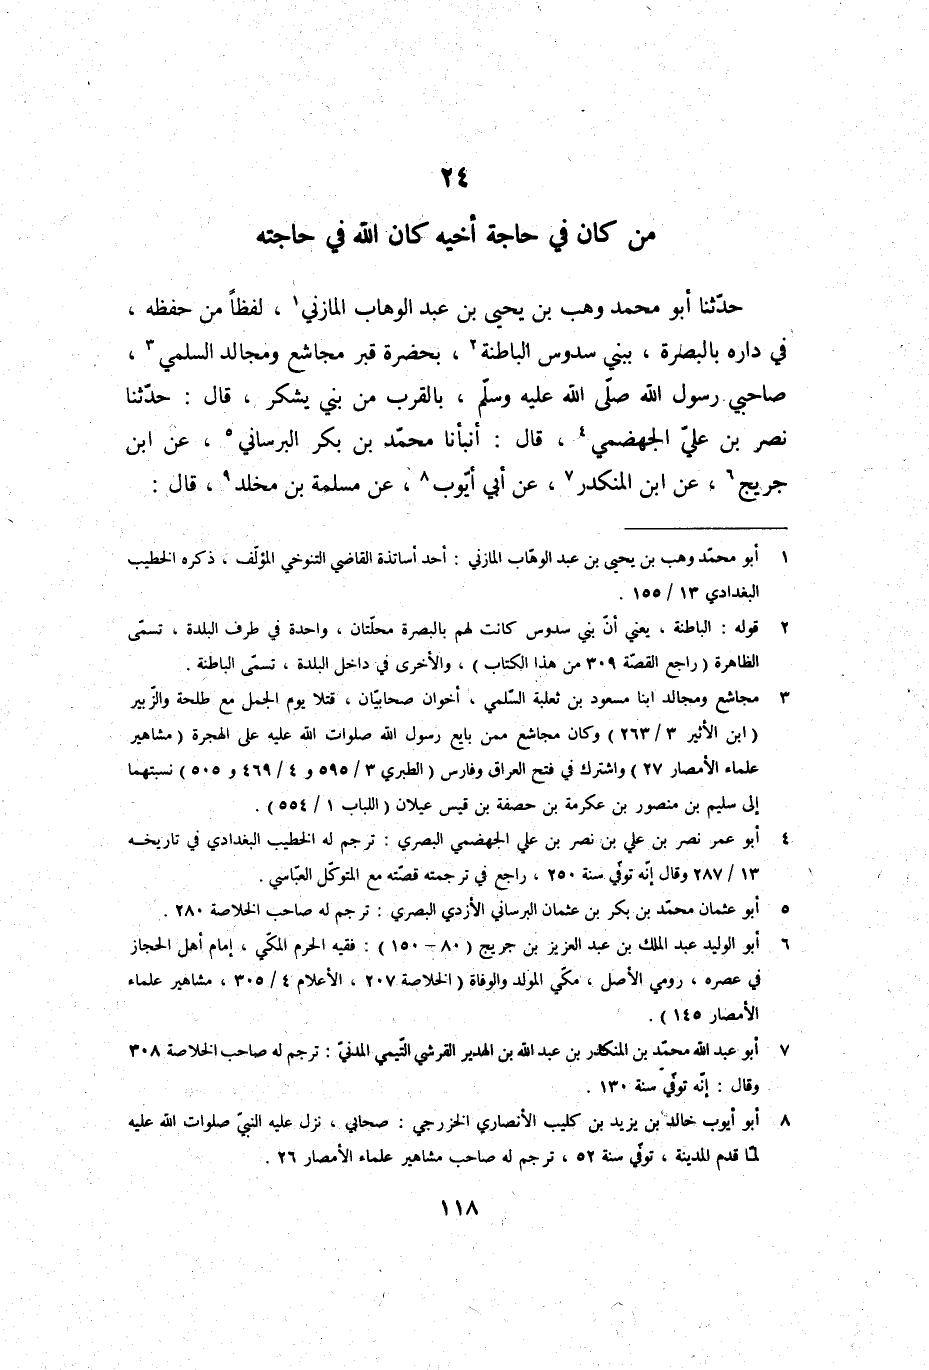 ٢٤
من كان في حاجة أخيه كان الله في حاجته
حدّثنا أبو محمد وهب بن يحيى بن عبد الوهاب المازني١ ، لفظاً من حفظه ،
في داره بالبصرة ، ببني سدوس الباطنة٢ ، بحضرة قبر مجاشع ومجالد السلمي٣ ،
صاحبي رسول الله صلّى الله عليه وسلّم ، بالقرب من بني يشكر ، قال : حدّثنا
نصر بن عليّ الجهضمي٤ ، قال : أنبأنا محمّد بن بكر البرساني٥ ، عن ابن
جريج٦ ، عن ابن المنكدر٧ ، عن أبي أيّوب٨ ، عن مسلمة بن مخلد٩ ، قال :
١ أبو محمّد وهب بن يحيى بن عبد الوهّاب المازني : أحد أساتذة القاضي التنوخي المؤلّف ، ذكره الخطيب
البغدادي ١٣ / ١٥٥ .
٢ قوله : الباطنة ، يعني أنّ بني سدوس كانت لهم بالبصرة محلّتان ، واحدة في طرف البلدة ، تسمّى
الظاهرة ( راجع القصّة ٣٠٩ من هذا الكتاب ) ، والأخرى في داخل البلدة ، تسمّى الباطنة .
٣ مجاشع ومجالد ابنا مسعود بن ثعلبة السّلمي ، أخوان صحابيّان ، قتلا يوم الجمل مع طلحة والزّبير
( ابن الأثير ٣ / ٢٦٣ ) وكان مجاشع ممن بايع رسول الله صلوات الله عليه على الهجرة ( مشاهير
علماء الأمصار ٢٧ ) واشترك في فتح العراق وفارس ( الطبري ٣ / ٥٩٥ و ٤ / ٤٦٩ و ٥٠٥ ) نسبتهما
إلى سليم بن منصور بن عكرمة بن حصفة بن قيس عيلان ( اللباب ١ / ٥٥٤ ) .
٤ أبو عمر نصر بن علي بن نصر بن علي الجهضمي البصري : ترجم له الخطيب البغدادي في تاريخـه
١٣ / ٢٨٧ وقال إنّه توفّي سنة ٢٥٠ ، راجع في ترجمته قصّته مع المتوكّل العبّاسي .
٥ أبو عثمان محمّد بن بكر بن عثمان البرساني الأزدي البصري : ترجم له صاحب الخلاصة ٢٨٠ .
٦ أبو الوليد عبد الملك بن عبد العزيز بن جريج ( ٨٠ – ١٥٠ ) : فقيه الحرم المكّي ، إمام أهل الحجاز
في عصره ، رومي الأصل ، مكّي المولد والوفاة ( الخلاصة ٢٠٧ ، الأعلام ٤ / ٣٠٥ ، مشاهير علماء
الأمصار ١٤٥ ) .
٧ أبو عبد الله محمّد بن المنكدر بن عبد الله بن الهدير القرشي التّيمي المدنيّ : ترجم له صاحب الخلاصة ٣٠٨
وقال : إنّه توفّي سنة ١٣٠ .
٨ أبو أيوب خالد بن يزيد بن كليب الأنصاري الخزرجي : صحابي ، نزل عليه النبيّ صلوات الله عليه
لمّا قدم المدينة ، توفّي سنة ٥٢ ، ترجم له صاحب مشاهير علماء الأمصار ٢٦ .
١١٨